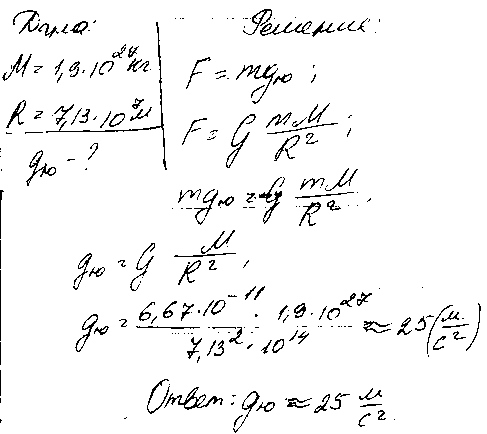 Дано:
M = 1,9·10²⁷ кг
R = 7,13·10⁷ м
gю - ?
Решение:
F = mgю ;
F = G mM/R² ;
mgю = G mM/R² .
gю = G M/R² ,
gю = 6,67·10⁻¹¹ · 1,9·10²⁷ / 7,13² · 10¹⁴ ≈ 25 (м/с²)
Ответ: gю ≈ 25 м/с².